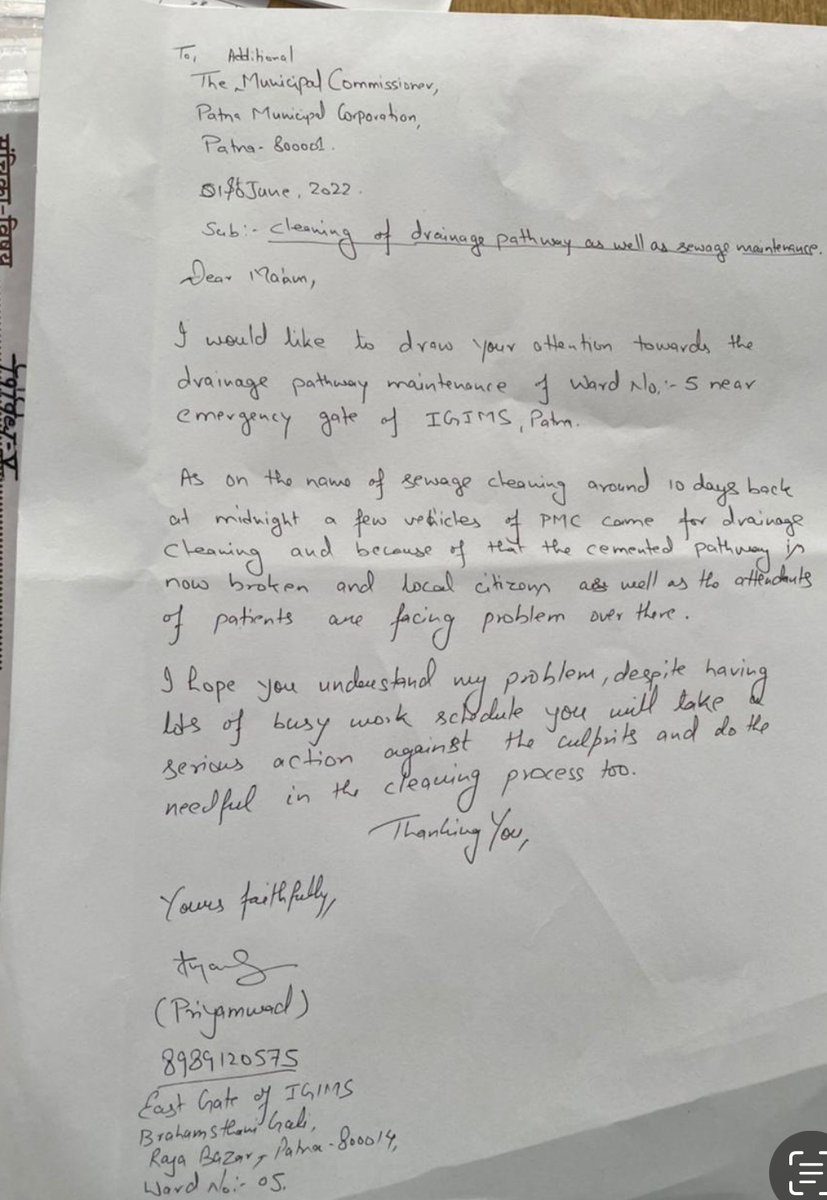 To, Additional
The Municipal Commissioner,
Patna Municipal Corporation,
Patna- 800001.
June, 2022.
Sub:- Cleaning of drainage pathway as well as sewage maintenance.
Dear Ma'am,
I would like to draw your attention towards the
drainage pathway maintenance of Ward No.:- 5 near
emergency gate of IGIMS, Patna.
As on the name of sewage cleaning around 10 days back
at midnight a few vehicles of PMC came for drainage
cleaning and because of that the cemented pathway is
now broken and local citizens as well as the attendants
of patients are facing problem over there.
I hope you understand my problem, despite having
lots of busy work schedule you will take a
serious action against the culprits and do the
needful in the cleaning process too.
Thanking You,
Yours faithfully,
(Priyamwad)
8989120575
East Gate of IGIMS
Brahamsthani Gali,
Raja Bazar, Patna-800014,
Ward No:- 05.